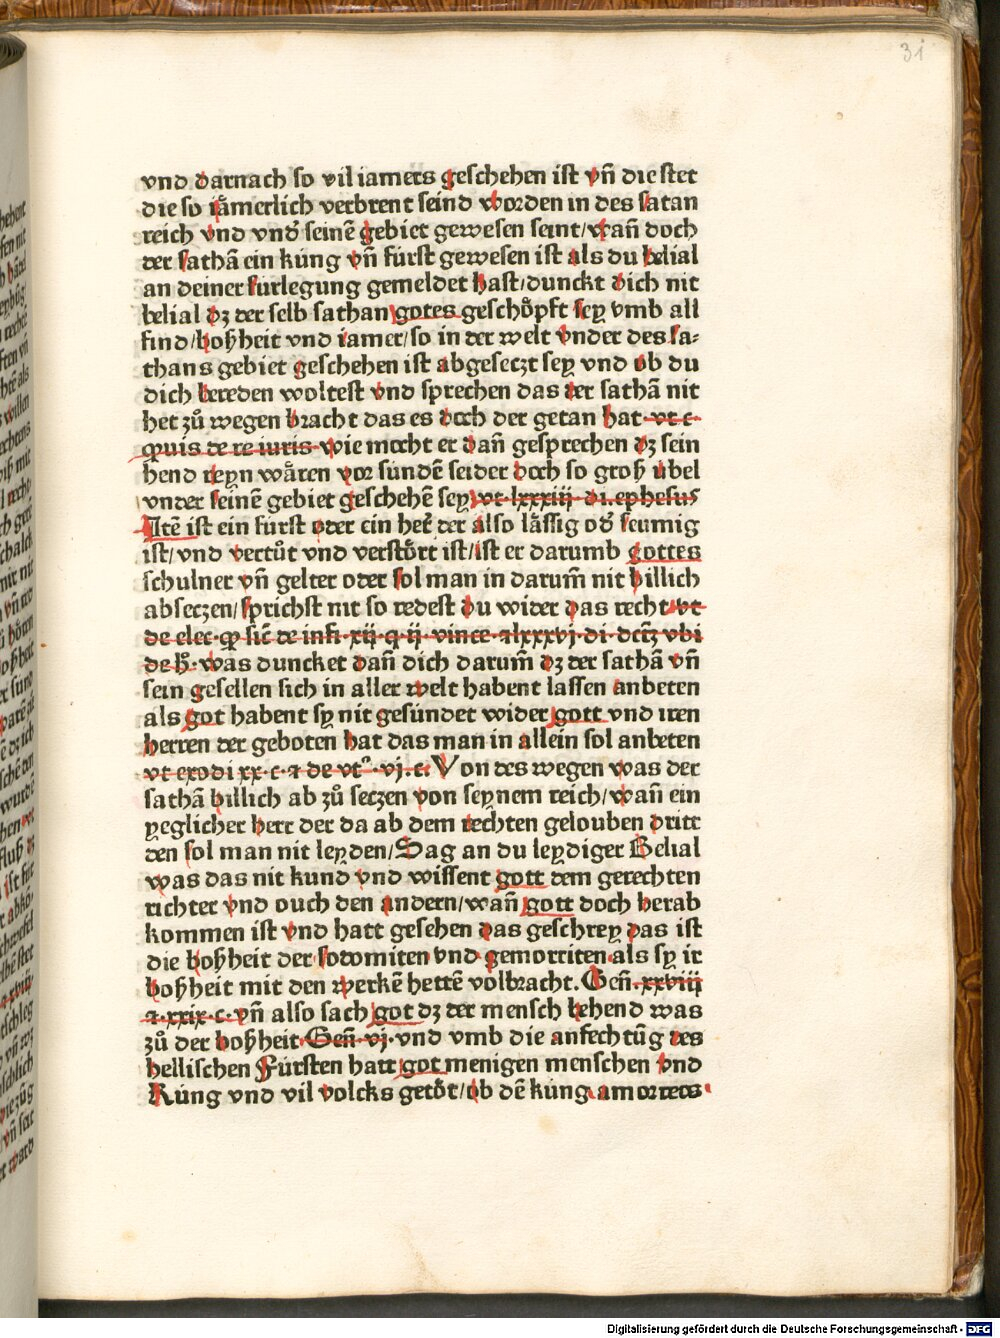 31
vnd darnach so vil iamers geschehen ist vn̄ die stet
die so iåmerlich verbrent seind worden in des satan
reich vnd vnd' seinē gebiet gewesen seint/wan̄ doch
der sathā ein küng vn̄ fürst gewesen ist als du belial
an deiner furlegung gemeldet hast/dunckt dich nit
belial dz der selb sathan gotes geschöpft sey vmb all
sind/boßheit vnd iamer/so in der welt vnder des sa⸗
thans gebiet geschehen ist abgeseczt sey vnd ob du
dich bereden woltest vnd sprechen das der sathā nit
het zů wegen bracht das es doch der getan hat vt c.
quis de re iuris wie mocht er dan̄ gesprechen dz sein
hend reyn wåren vor sündē seider doch so groß übel
vnder seinē gebiet geschehē sey vt lxxxiij di. ephesus
Itē ist ein fürst oder ein her' der also låssig od' seumig
ist/vnd vertůt vnd verstört ist/ist er darumb gottes
schulner vn̄ gelter oder sol man in darum̄ nit billich
abseczen/sprichst nit so redest du wider das recht vt
de elec. q̄ sic̄ de infi. xij. q. ij. vince. ⁊ lxxxvj. di. dctz vbi
de h̄. was duncket dan̄ dich darum̄ dz der sathā vn̄
sein gesellen sich in aller welt habent lassen anbeten
als got habent sy nit gesündet wider gott vnd iren
herren der geboten hat das man in allein sol anbeten
vt exodi xx. c. ⁊ de vt°. vj. c. Von des wegen was der
sathā billich ab zů seczen von seynem reich/wan̄ ein
yeglicher herr der da ab dem rechten gelouben dritt
den sol man nit leyden/Sag an du leydiger Belial
was das nit kund vnd wissent gott dem gerechten
richter vnd ouch den andern/wan̄ gott doch herab
kommen ist vnd hatt gesehen das geschrey das ist
die boßheit der sotomiten vnd gemorriten als sy ir
boßheit mit den werkē hettē volbracht. Gen̄. xxviij
⁊. xxix. c. vn̄ also sach got dz der mensch behend was
zů der boßheit Gen̄. vj. vnd vmb die anfechtūg des
hellischen Fürsten hatt got menigen menschen vnd
Küng vnd vil volcks getöt/ob dē küng amorreos
Digitalisierung gefördert durch die Deutsche Forschungsgemeinschaft - DFG